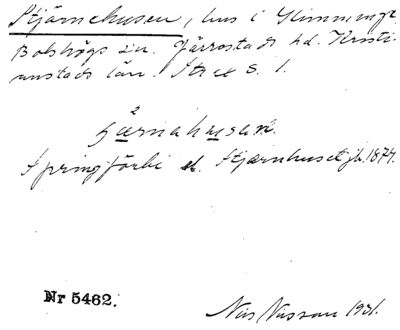 Stjärnehusen, hus i Glimminge,
Bolshögs sn. Järrestads hd. Kristi-
anstads län. Str æ S. 1.
2
ʃærnahusan.
Springförbi el. Stjärnhuset jb. 1874.
Nr 5462.
Nils Nilsson 1931.